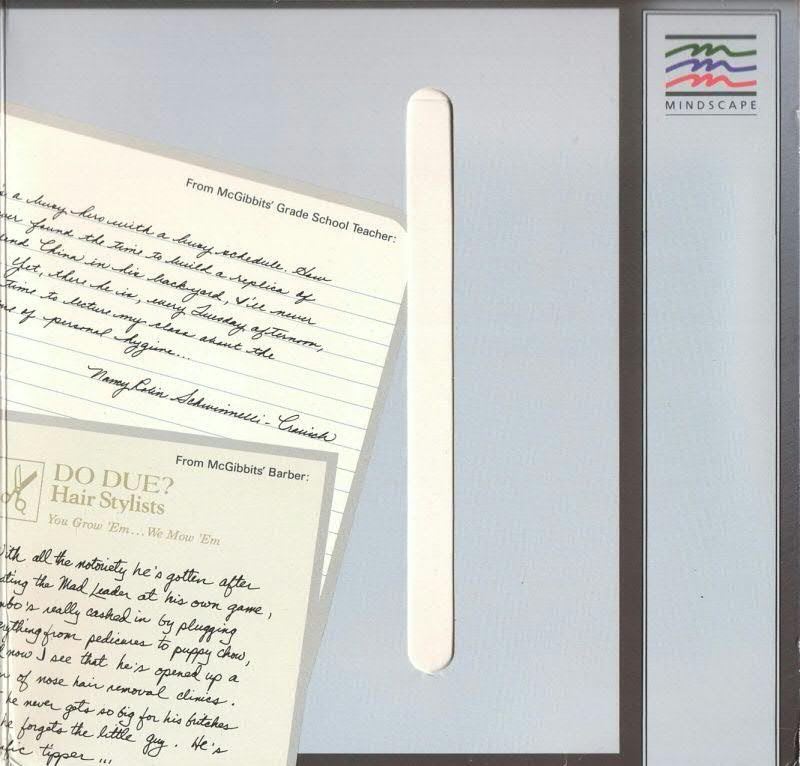 MINDSCAPE
From McGibbits' Grade School Teacher:
a busy hero with a busy schedule. How
found the time to build a replica of
China in his backyard, I'll never
Yet, there he is, every Tuesday afternoon,
time to lecture my class about the
of personal hygiene...
Nancy Schwinnelli-
From McGibbits' Barber:
DO DUE?
Hair Stylists
You Grow 'Em...We Mow 'Em
all the notoriety he's gotten after
the Mad Leader at his own game,
really cashed in by plugging
from pedicures to puppy chow,
now I see that he's opened up a
of nose hair removal clinics.
he never gets so big for his britches
he forgets the little guy. He's
tipper...